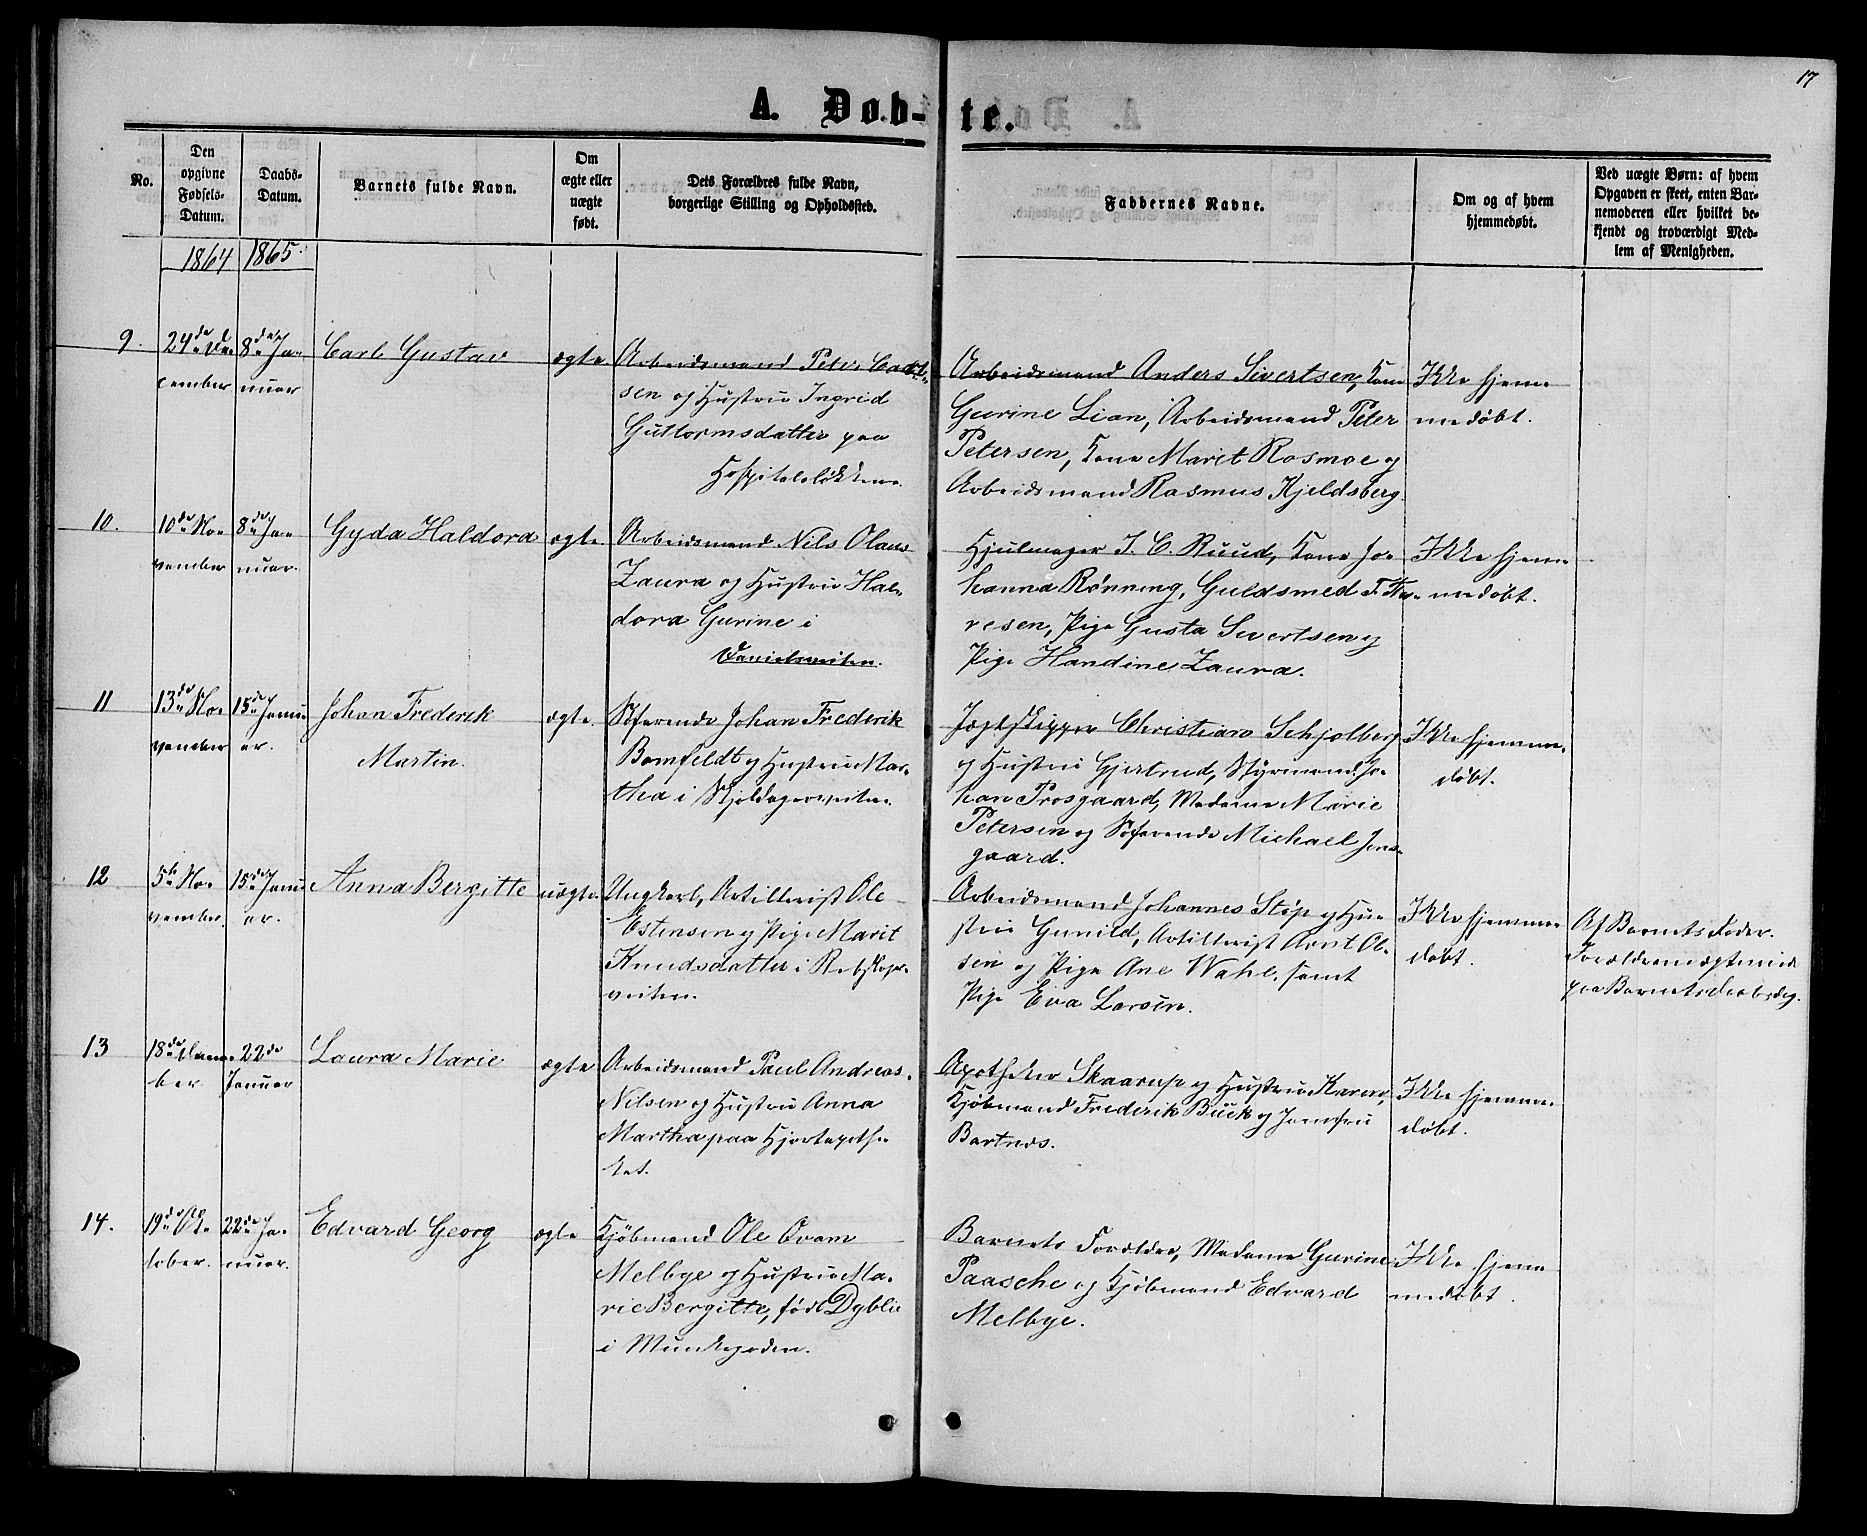 17
A. Døb-te.
No.
Den
opgivne
Fødsels-
Datum.
Daabs-
Datum.
Barnets fulde Navn.
Om
ægte eller
uægte
født.
Dets Forældres fulde Navn,
borgerlige Stilling og Opholdssted.
Faddernes Navne.
Om og af hvem
hjemmedøbt.
Ved uægte Børn: af hvem
Opgaven er skeet, enten Bar-
nemoderen eller hvilket be-
kjendt og troværdigt Med-
lem af Menigheden.
1864
1865
9.
24de De-
cember
8de Ja-
nuar
Carl Gustav
ægte
Arbeidsmand Peter Carl-
sen og Hustru Ingrid
Guttormsdatter paa
Hospitalsløkkene.
Arbeidsmand Anders Sivertsen, Kone
Gurine Lian, Arbeidsmand Peter
Petersen, Kone Marit Rosmoe og
Arbeidsmand Rasmus Kjeldsberg.
Ikke hjem-
medøbt.
10.
10de No-
vember
8de Ja-
nuar.
Gyda Haldora
ægte
Arbeidsmand Nils Olaus
Zaura og Hustru Hal-
dora Gurine i
Danielsveiten.
Hjulmager I. C. Ruud, Kone Jo-
hanna Rønning, Guldsmed F.
resen, Pige Gusta Sivertsen og
Pige Handine Zaura.
Ikke hjem-
medøbt.
11
13de No-
vember
15de Janu-
ar.
Johan Frederik
Martin.
ægte.
Søfarende Johan Frederik
Bomfeldt og Hustru Mar-
tha i Skjoldagerveiten.
Jægtskipper Christian Schjolberg
og Hustru Gjertrud, Styrmand Jo-
han Prosgaard, Madame Marie
Petersen og Søfarende Michael Jens-
gaard.
Ikke hjemme-
døbt.
12
5te No-
vember.
15de Janu-
ar.
Anna Bergitte
uægte.
Ungkarl, Artillerist Ole
Estensen og Pige Marit
Knudsdatter i Rebslager-
veiten.
Arbeidsmand Johannes Støp og Hu-
stru Gunild, Artillerist Arnt Ol-
sen og Pige Ane Wahl, samt
Pige Eva Larsen.
Ikke hjemme-
døbt.
Af Barnets Fader.
Forældrene ægteviede
paa Barnets Daabsdag.
13
18de Decem-
ber
22de
Januar
Laura Marie
ægte
Arbeidsmand Paul Andreas
Nilsen og Hustru Anna
Martha paa Hjorteapothe-
ket.
Apotheker Skaarup og Hustru Karen,
Kjøbmand Frederik Buck og Jomfru
Bartnes.
Ikke hjemme-
døbt.
14.
19de Ok-
tober.
22de Ja-
nuar.
Edvard Georg
ægte
Kjøbmand Ole Qvam
Melbye og Hustru Ma-
rie Bergitte, født Dyblie
i Munkegaden.
Barnets Forældre, Madame Gurine
Paasche og Kjøbmand Edvard
Melbye.
Ikke hjem-
medøbt.